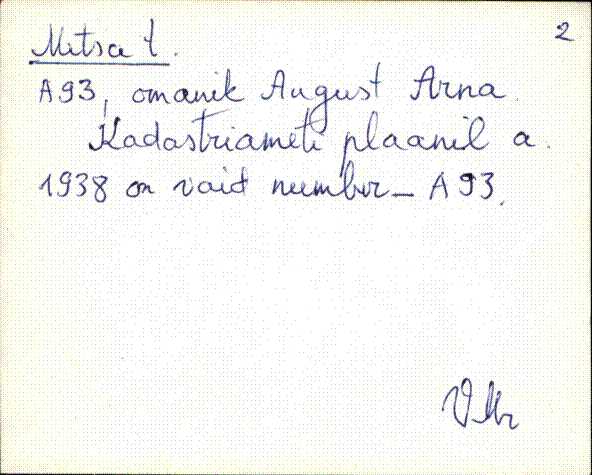 Metsa t. 2
A93, omanik August Arna.
Kadastriameti plaanil a.
1938 on vaid number – A93.